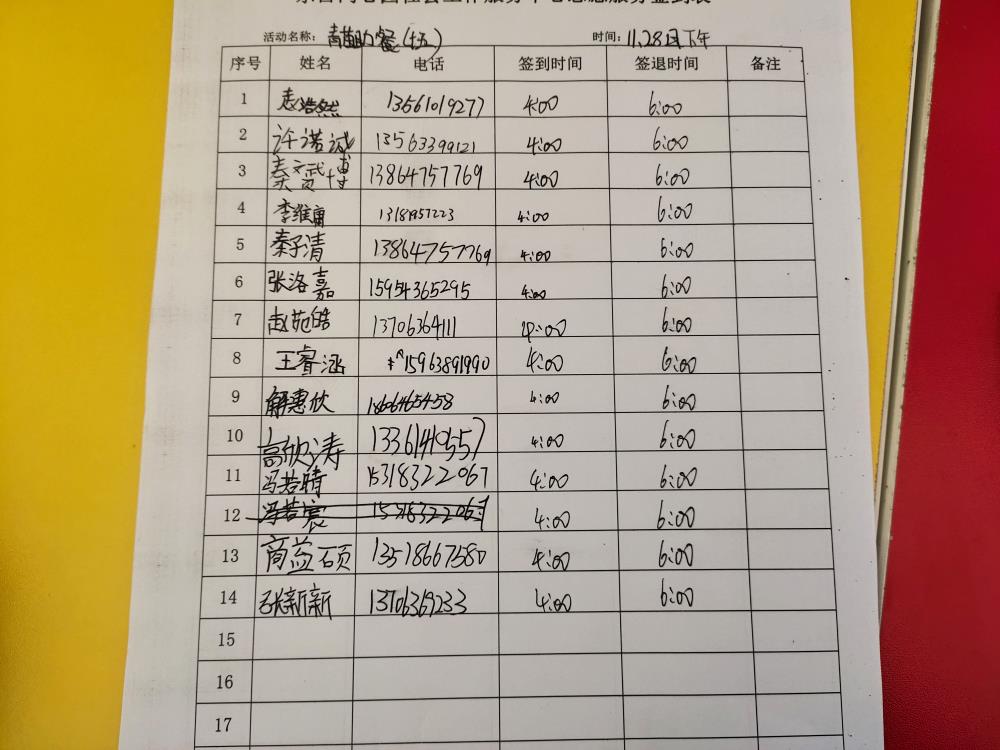 活动名称: 青苗助餐(十五) 时间: 11.28日下午
序号 姓名 电话 签到时间 签退时间 备注
1 浩然 13561019277 4:00 6:00
2 许诺诚 13563399121 4:00 6:00
3 秦斌博 13864757769 4:00 6:00
4 李维庸 13181957223 4:00 6:00
5 秦子清 13864757769 4:00 6:00
6 张洛嘉 15954365295 4:00 6:00
7 赵苑皓 13706364111 4:00 6:00
8 王睿涵 15963891990 4:00 6:00
9 解惠欣 18606465458 4:00 6:00
10 高欣涛 13361410557 4:00 6:00
11 冯若晴 15318322067 4:00 6:00
12 4:00 6:00
13 商益硕 13518667580 4:00 6:00
14 张新新 13706369233 4:00 6:00
15
16
17